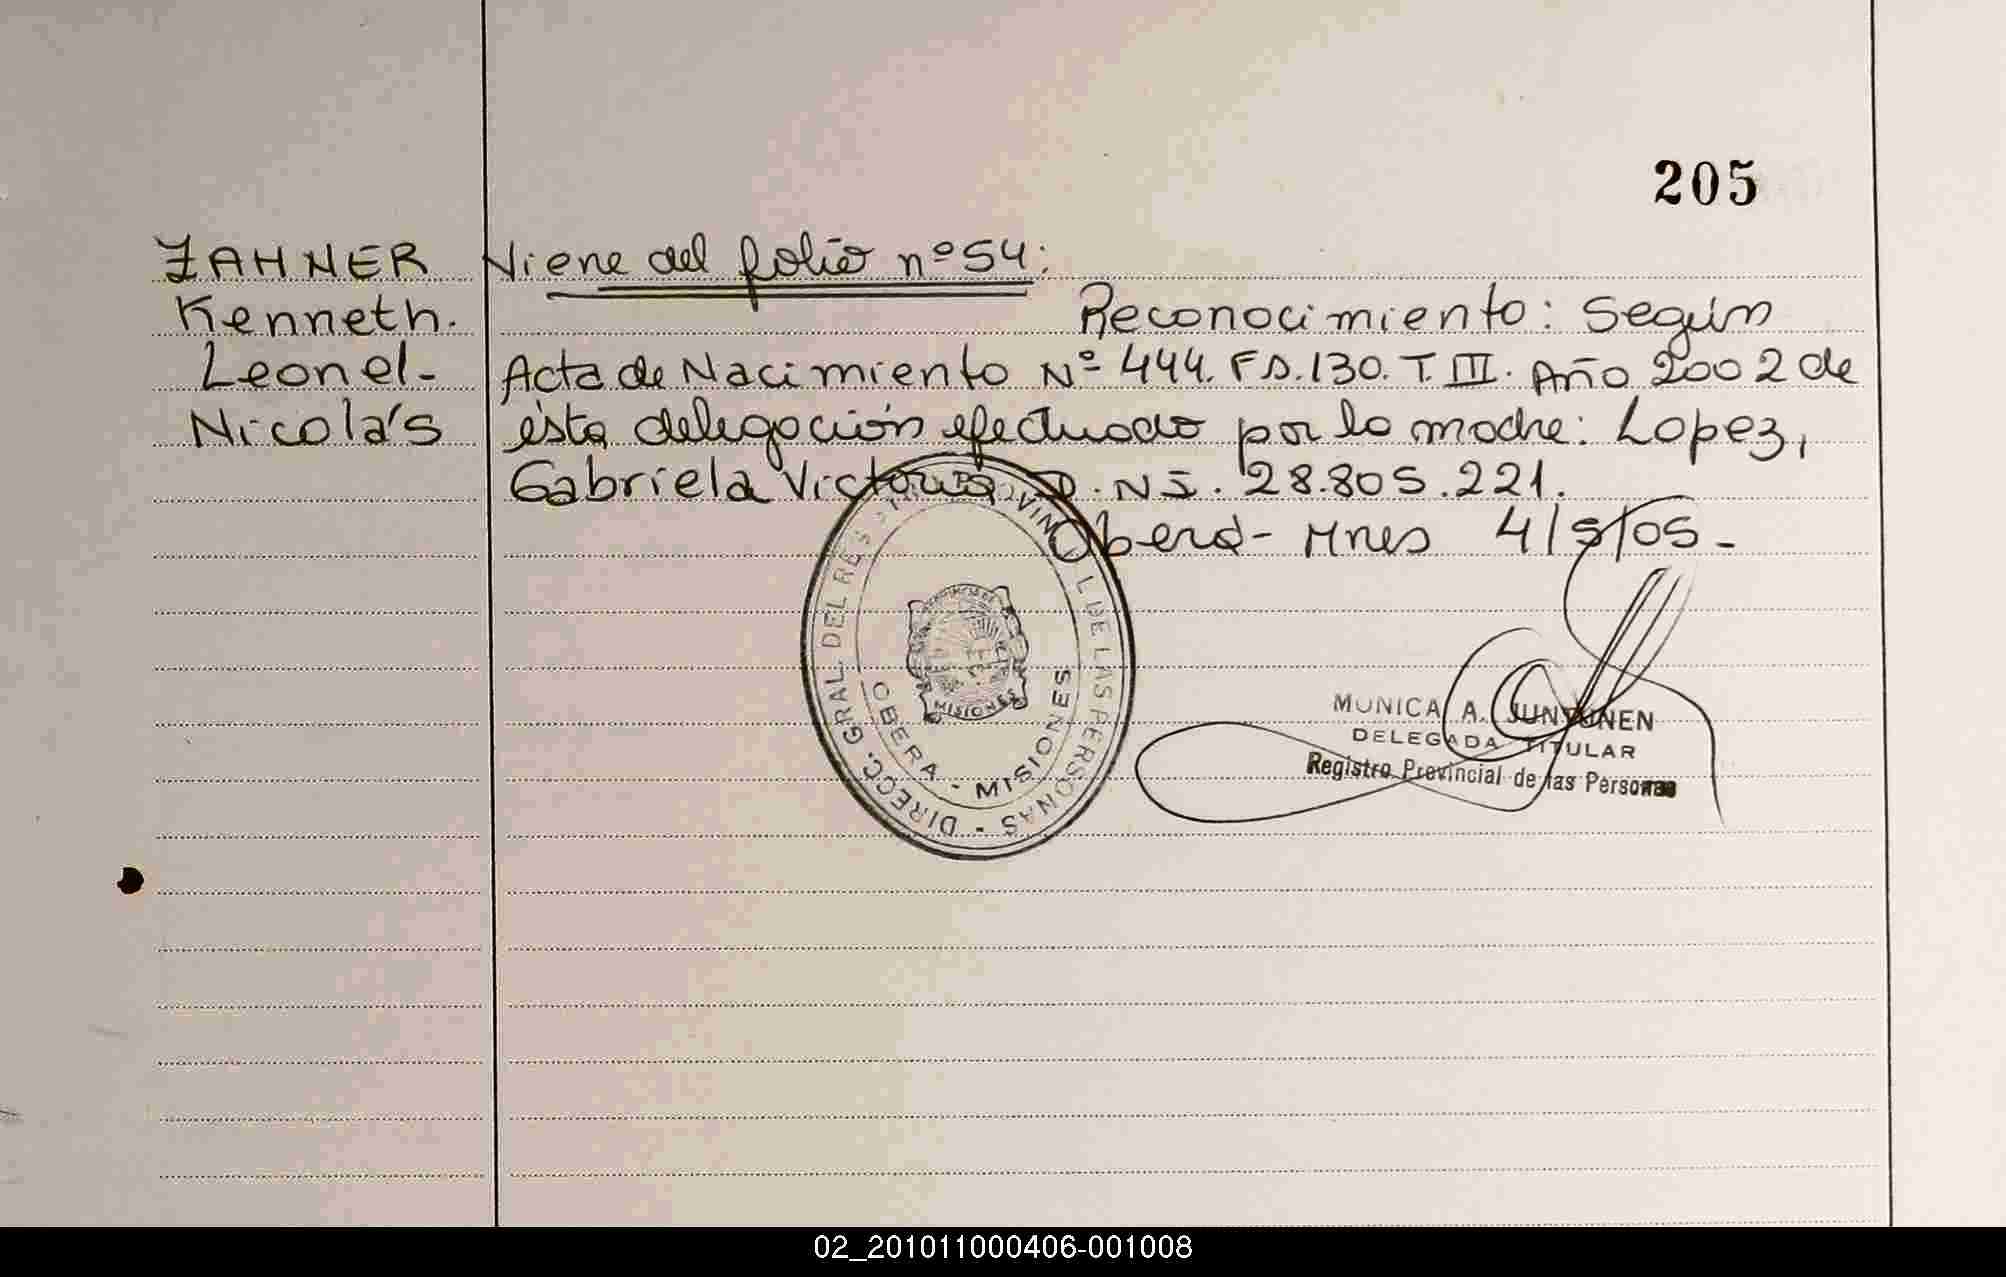 205
ZAHNER Viene del folio nº 54:
Kenneth. Reconocimiento: Según
Leonel- Acta de Nacimiento Nº 444. Fs. 130. T. III. Año 2002 de
Nicolás ésta delegación efectuado por la madre: Lopez,
Gabriela Victoria D.NI. 28.805.221.
Oberá- Mnes 4/5/05-
DIRECC. GRAL DEL REG PROVINC L DE LAS PERSONAS -
MISIONES
OBERA - MISIONES
MONICA A. JUNTUNEN
DELEGADA TITULAR
Registro Provincial de las Personas
02_201011000406-001008